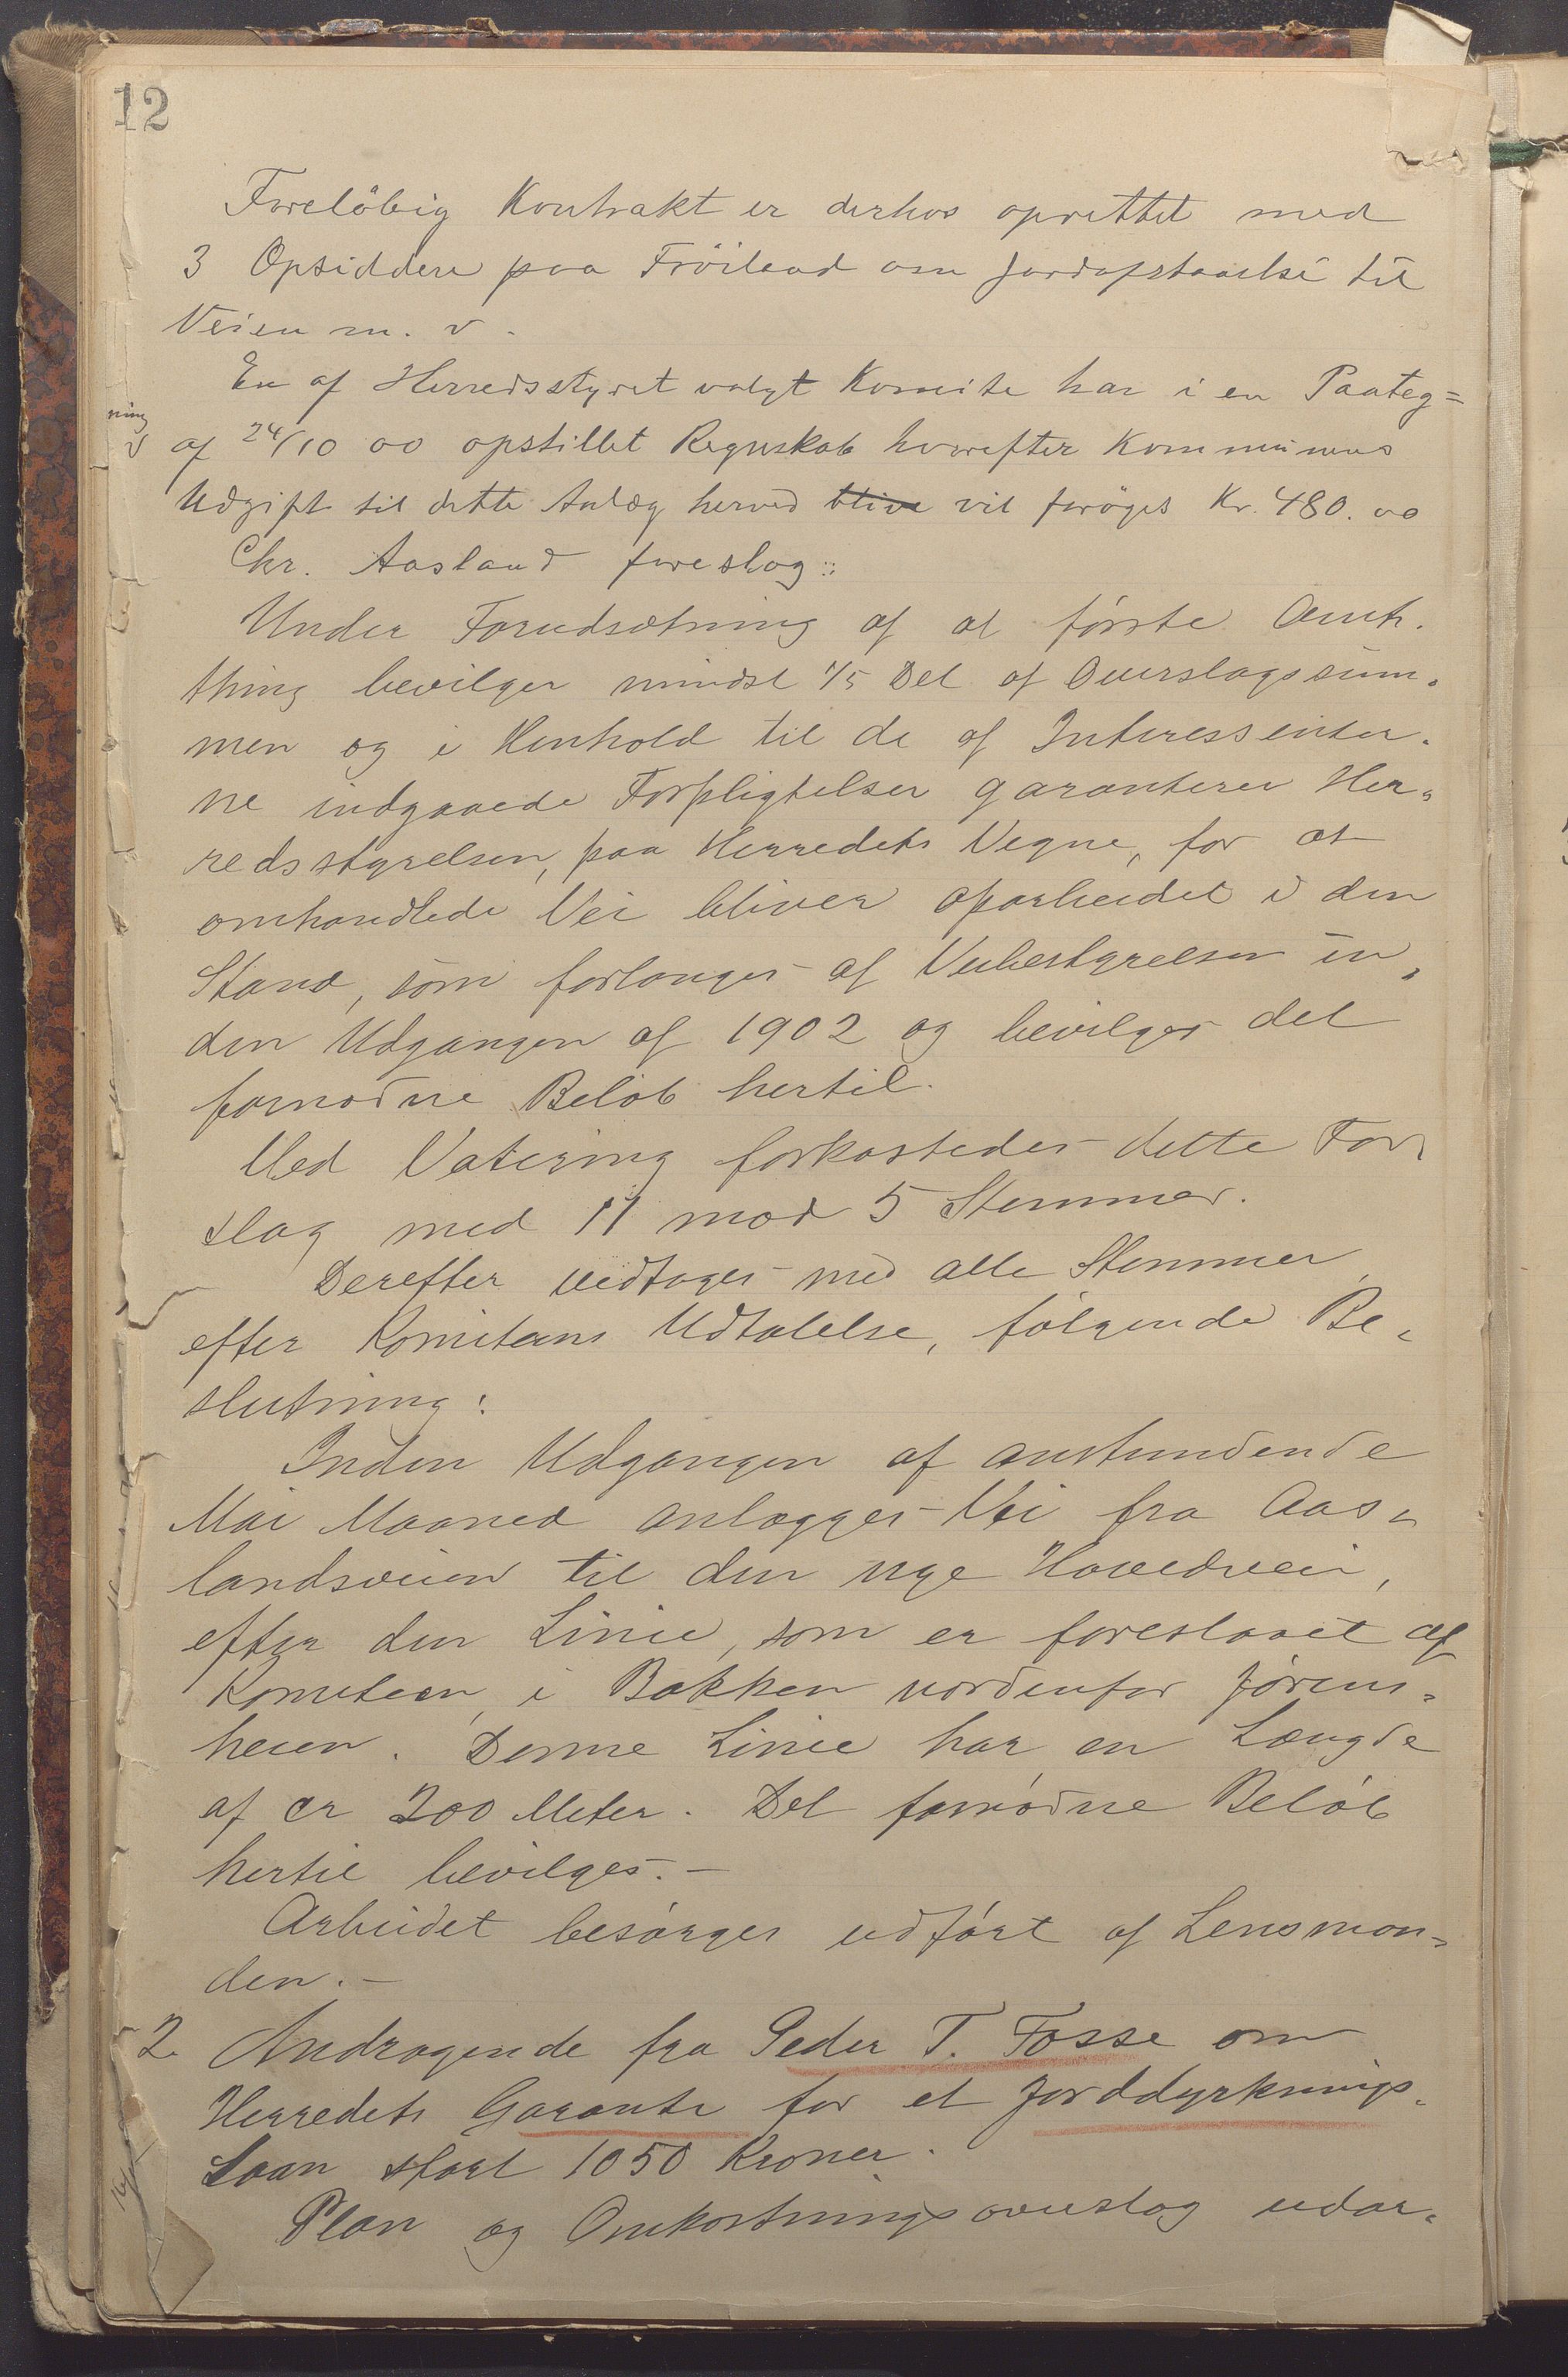 12
Foreløbig Kontrakt er derhos oprettet med
3 Opsiddere paa Fröiland om Jordafstaaelse til
Veien m. v.
En af Herredsstyret valgt Komite har i en Paateg=
ning
af 24/10 00 opstillet Regnskab hvorefter Kommunens
Udgift til dette Anlæg herved blive vil forøges Kr. 480.00
Chr. Aasland foreslog:
Under Forudsætning af at første Amts.
thing bevilger mindst 1/5 Del af Overslagssum-
men og i Henhold til de af Interessenter-
ne indgaaede Forpligtelser garanterer Her-
redsstyrelsen, paa Herredets Vegne, for at
omhandlede Vei bliver oparbeidet i den
Stand, som forlanges af Veibestyrelsen in-
den Udgangen af 1902 og bevilges det
fornødne Beløb hertil.
Ved Votering forkastedes dette For-
slag med 11 mod 5 Stemmer.
Derefter vedtoges med alle Stemmer,
efter Komiteens Udtalelse, følgende Be-
slutning:
Inden Udgangen af anstundende
Mai Maaned anlægges Vei fra Aas-
landsveien til den nye Hovedvei,
efter den Linie, som er foreslaaet af
Komiteen, i Bakken nordenfor Jørens-
heien. Denne Linie har en Længde
af ca 200 Meter. Det fornødne Beløb
hertil bevilges.-
Arbeidet besørges udført af Lensman-
den.-
2. Andragende fra Peder T. Fosse om
Herredets Garanti for et Jorddyrknings-
Laan stort 1050 Kroner.
Plan og Omkostningsoverslag udar-